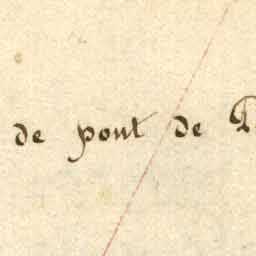 de pont de